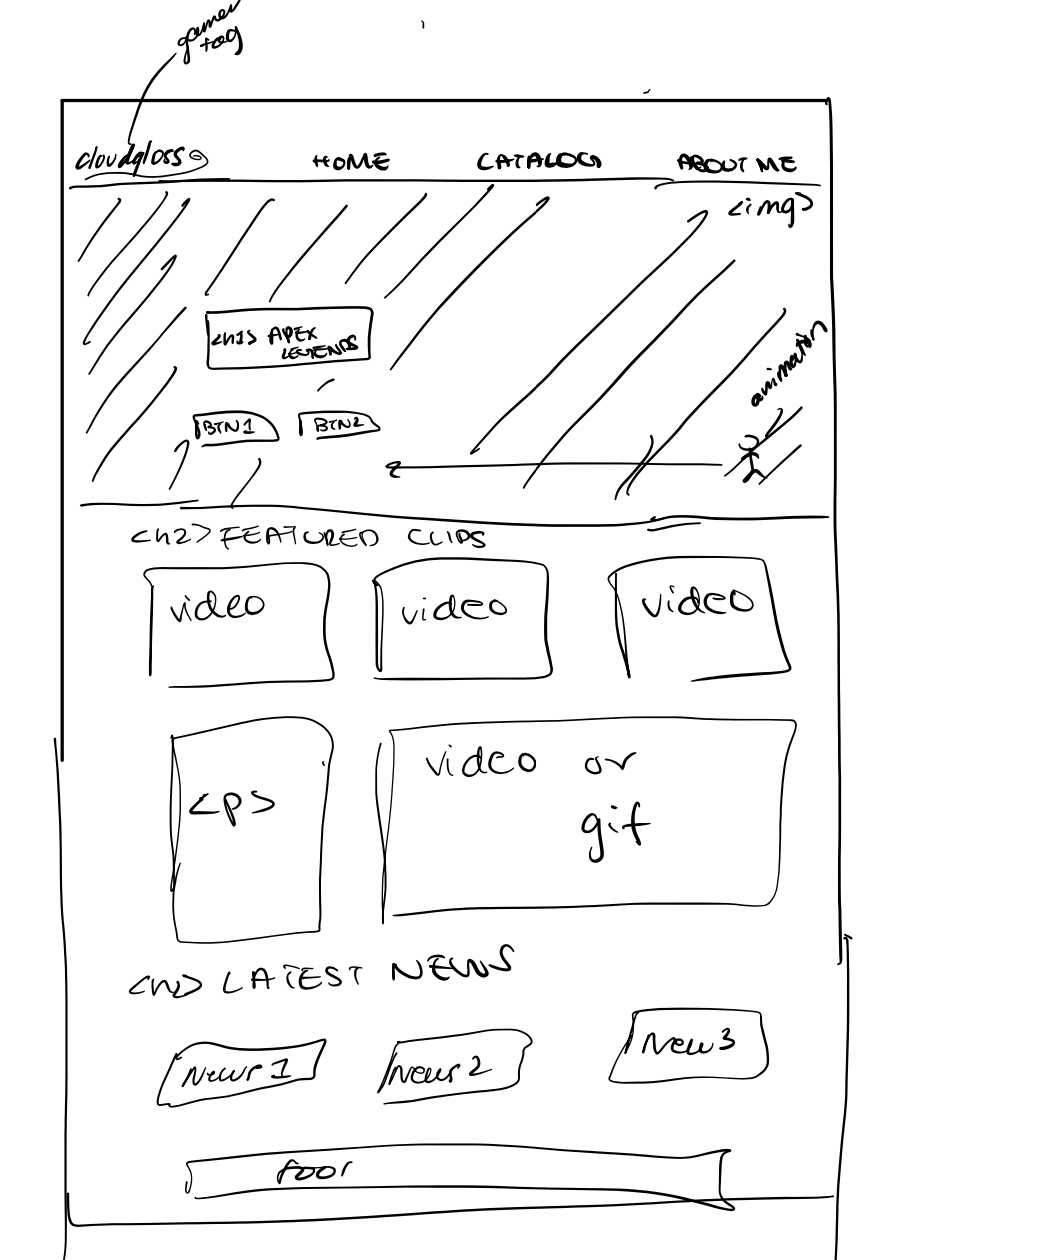 gamer
tag
cloudgloss HOME CATALOG ABOUT ME
<img>
<h1> APEX
LEGENDS
animation
BTN1 BTN2
<h2> FEATURED CLIPS
video video video
<p>
video or
gif
<h2> LATEST NEWS
News 1 News 2 New 3
foor